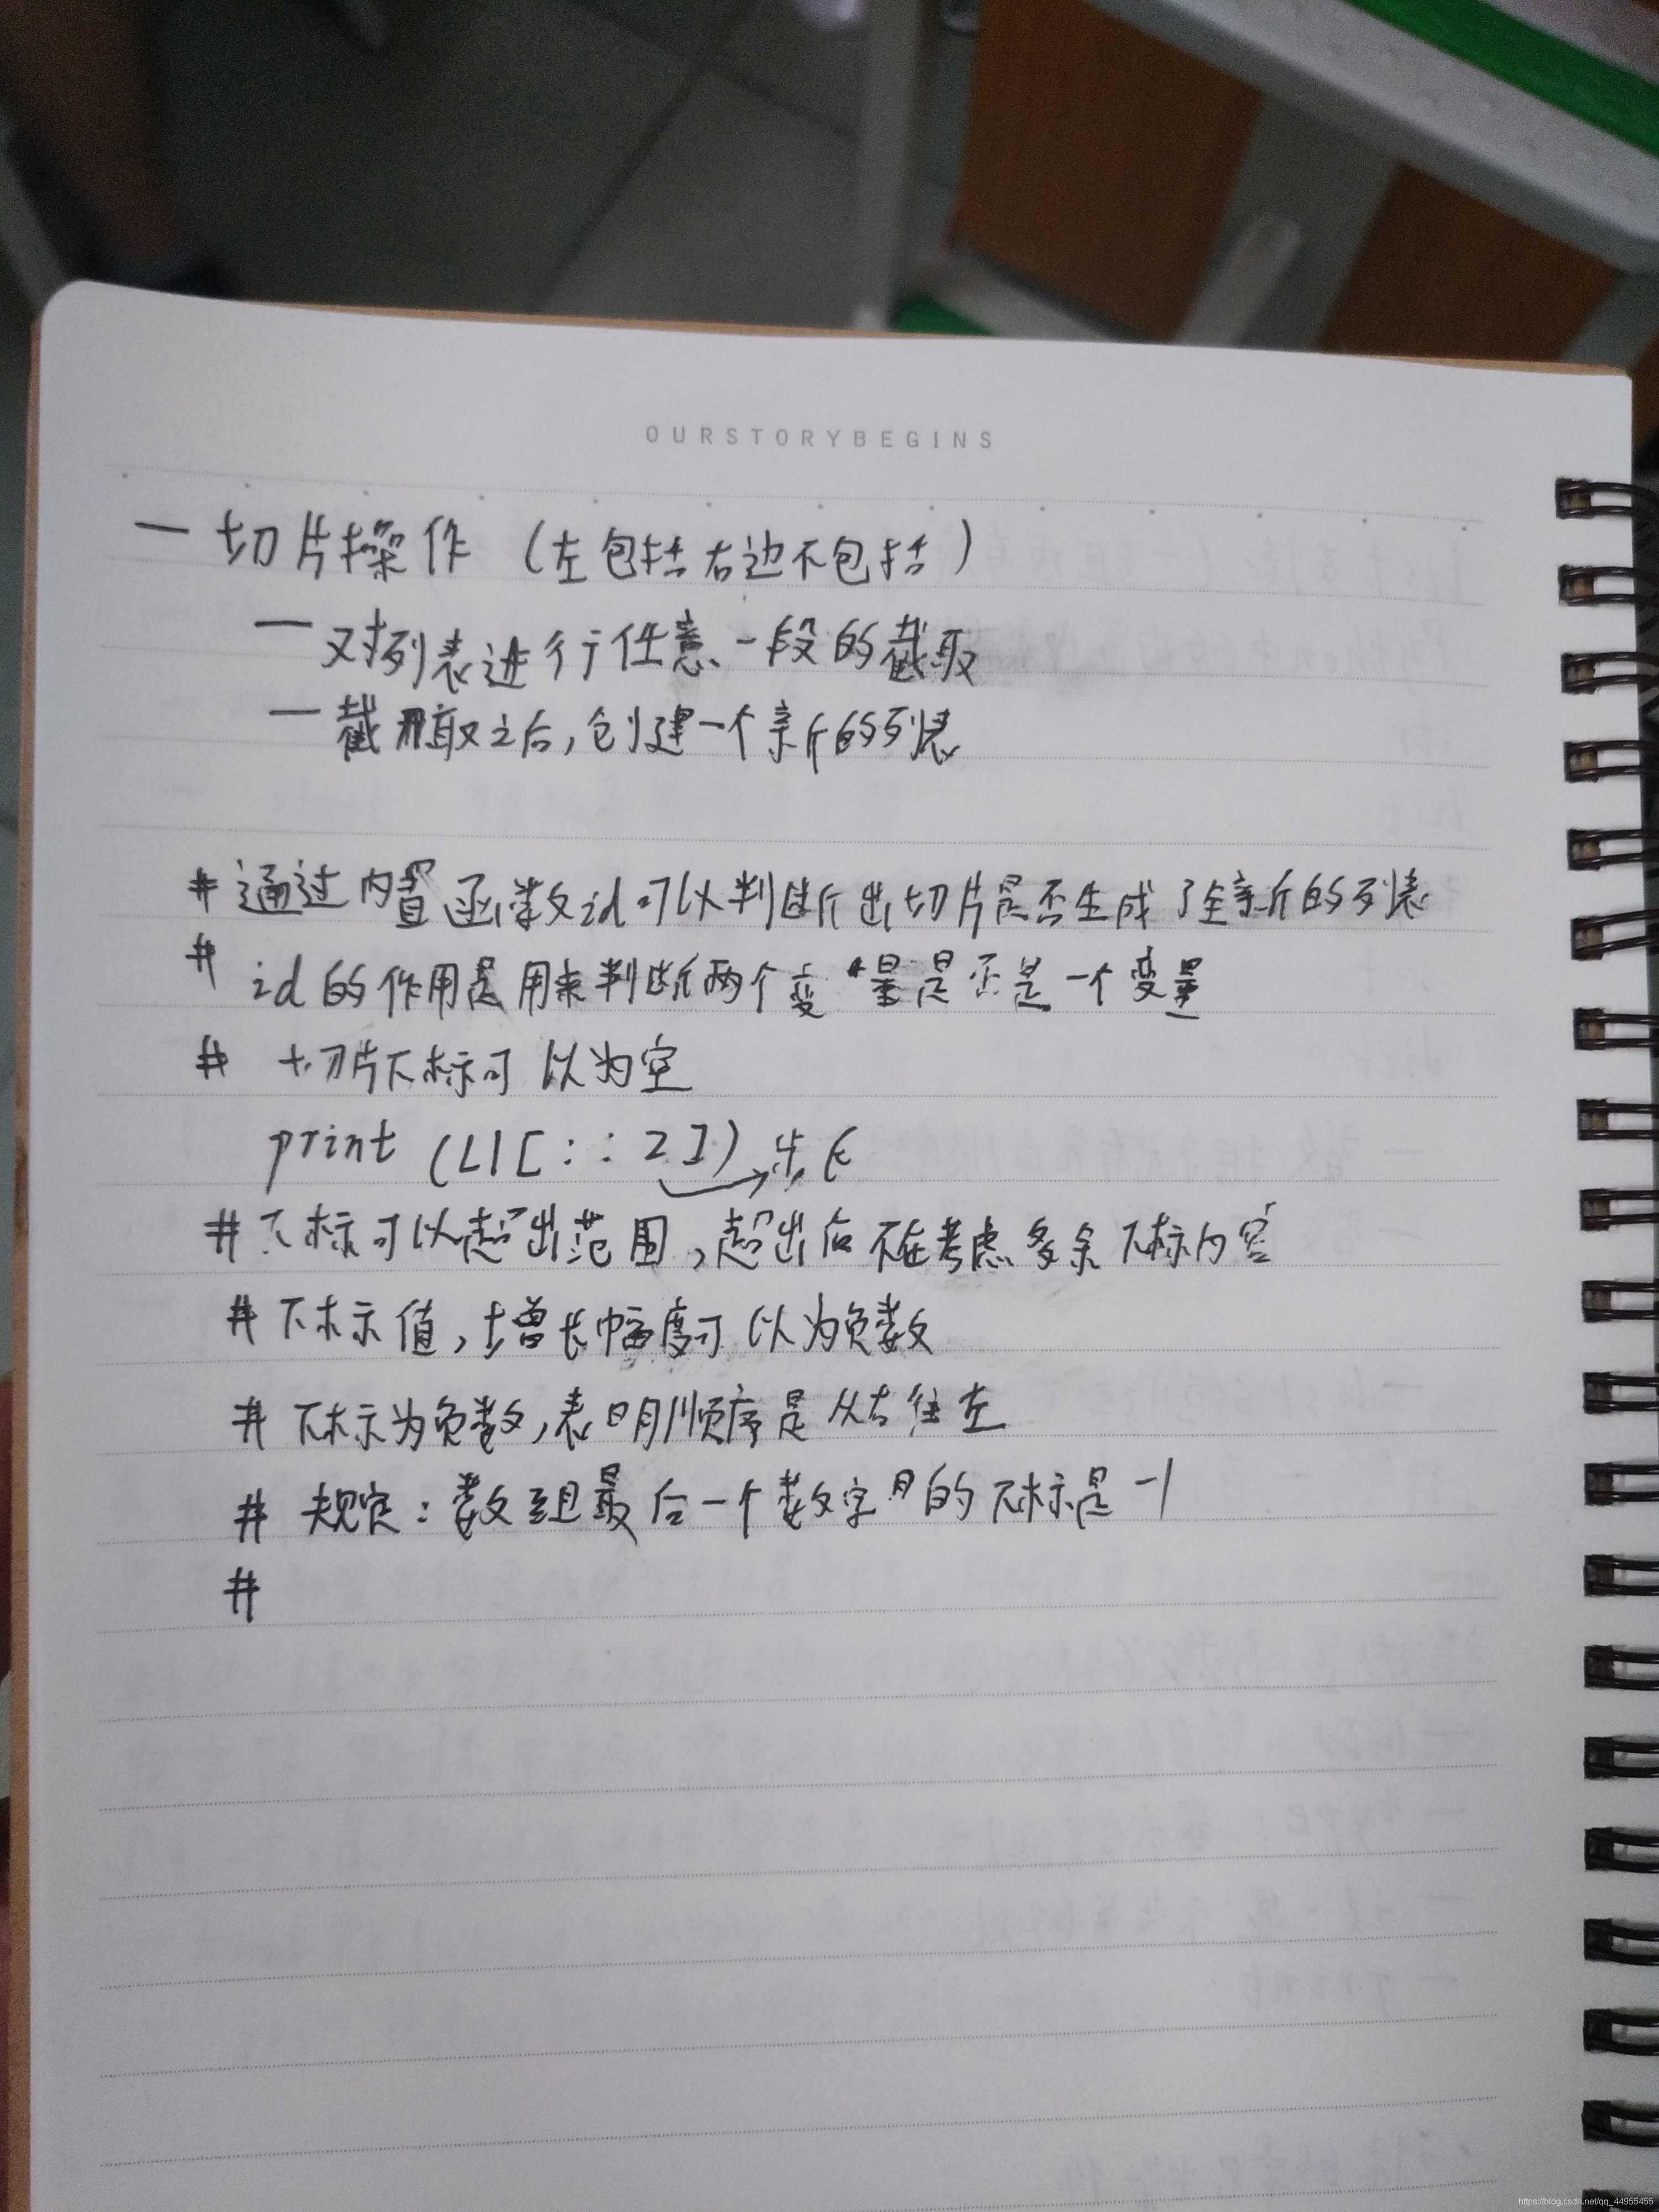 OURSTORYBEGINS
一 切片操作 (左包括右边不包括)
一 对列表进行任意一段的截取
一 截取之后,创建一个新的列表
# 通过内置函数id可以判断出切片是否生成了全新的列表
# id的作用是用来判断两个变量是否是一个变量
# 切片下标可以为空
print (L1[::2]) 步长
# 下标可以超出范围,超出后不在考虑多余下标内容
# 下标值,增长幅度可以为负数
# 下标为负数,表明顺序是从右往左
# 规定:数组最后一个数字的下标是 -1
#
https://blog.csdn.net/qq_44955455